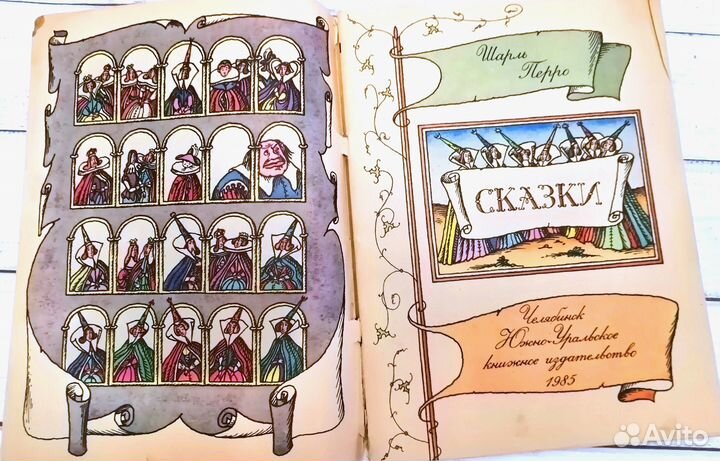 Шарль
Перро
СКАЗКИ
Челябинск
Южно-Уральское
книжное издательство
1985
Avito